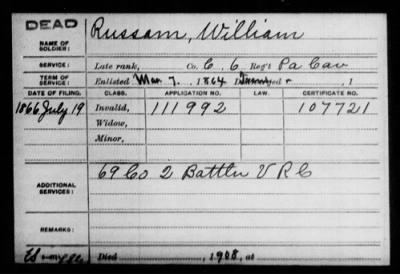 DEAD
NAME OF SOLDIER: Russam, William
SERVICE: Late rank, Co. C, 6 Reg't Pa Cav
TERM OF SERVICE: Enlisted Mar. 7, 1864 , 1
DATE OF FILING. CLASS. APPLICATION NO. LAW. CERTIFICATE NO.
1866 July 19 Invalid, 111992 107721
Widow,
Minor,
ADDITIONAL SERVICES: 69 Co 2 Battln V R C
REMARKS:
Died , 1908, at